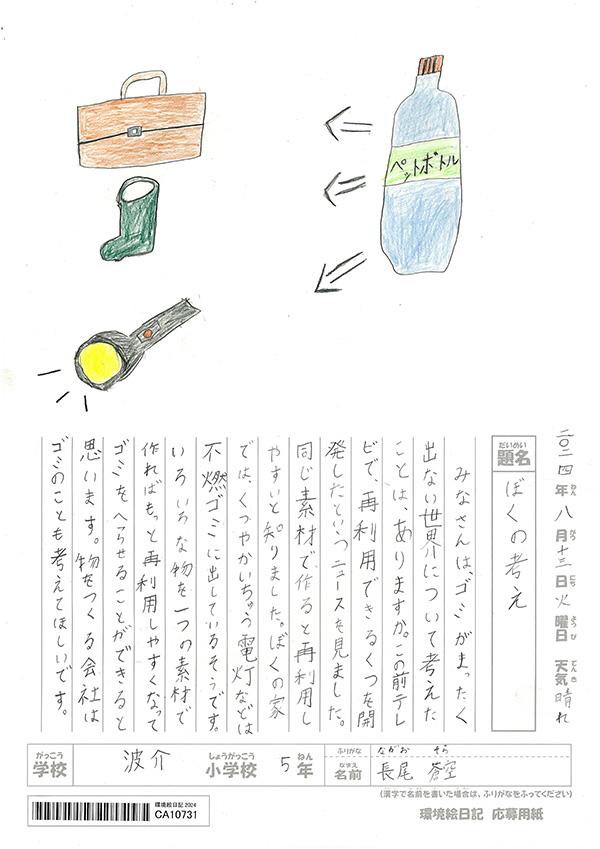 ペットボトル
二〇二四年八月十三日火曜日 天気晴れ
ねん がつ にち ようび てんき
だいめい
題名
ぼくの考え
みなさんは、ゴミがまったく
出ない世界について考えた
ことは、ありますか。この前テレ
ビで、再利用できるくつを開
発したというニュースを見ました。
同じ素材で作ると再利用し
やすいと知りました。ぼくの家
では、くつやかいちゅう電灯などは
不燃ゴミに出しているそうです。
いろいろな物を一つの素材で
作ればもっと再利用しやすくなって
ゴミをへらせることができると
思います。物をつくる会社は
ゴミのことも考えてほしいです。
がっこう しょうがっこう ねん
学校 波介 小学校 5年
ふりがな ながお そら
なまえ
名前 長尾 蒼空
(漢字で名前を書いた場合は、ふりがなをふってください)
環境絵日記 2024
CA10731
環境絵日記 応募用紙